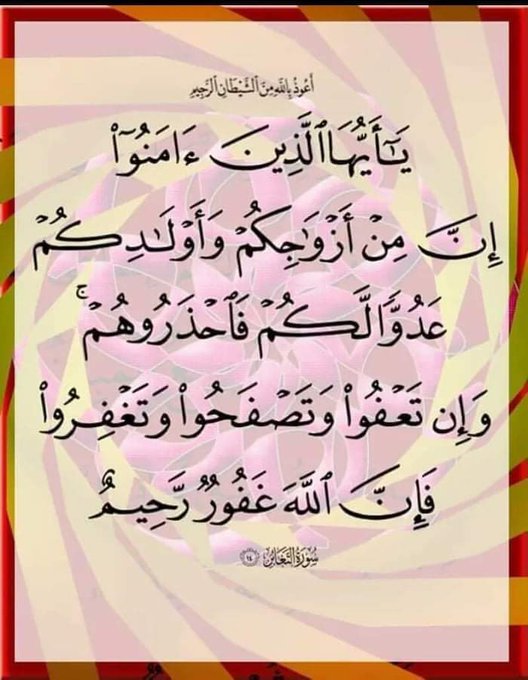 أَعُوذُ بِاللَّهِ مِنَ ٱلشَّيْطَانِ ٱلرَّجِيمِ
يَـٰٓأَيُّهَا ٱلَّذِينَ ءَامَنُوٓا۟
إِنَّ مِنْ أَزْوَٰجِكُمْ وَأَوْلَـٰدِكُمْ
عَدُوًّا لَّكُمْ فَٱحْذَرُوهُمْ ۚ
وَإِن تَعْفُوا۟ وَتَصْفَحُوا۟ وَتَغْفِرُوا۟
فَإِنَّ ٱللَّهَ غَفُورٌ رَّحِيمٌ
سُورَةُ التَّغَابُنِ ١٤